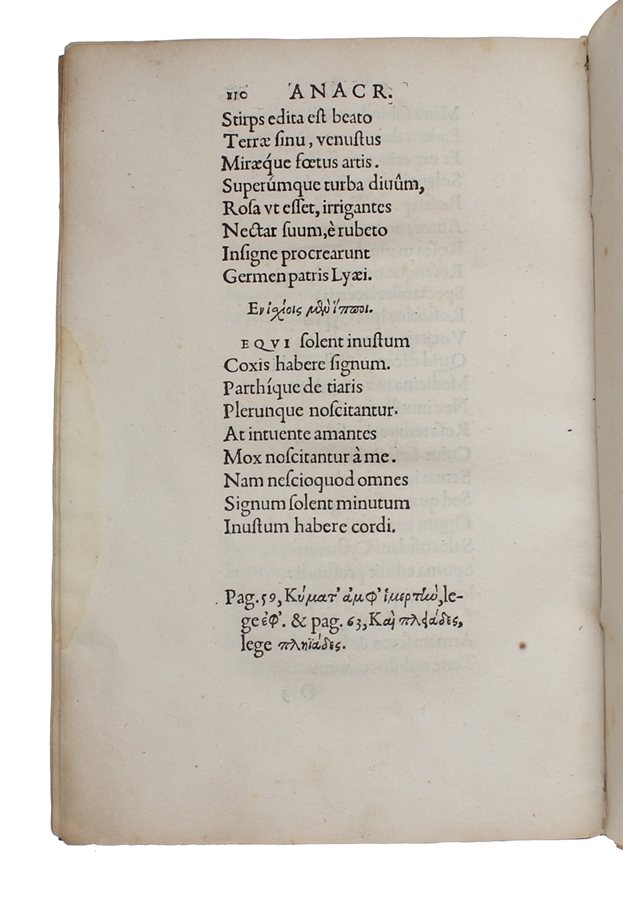 110 ANACR.
Stirps edita est beato
Terræ sinu, venustus
Miræq́ue fœtus artis.
Superúmque turba diuûm,
Rosa vt esset, irrigantes
Nectar suum, è rubeto
Insigne procrearunt
Germen patris Lyæi.
Εν ἰσχίοις μὲν ἵπποι.
EQVI solent inustum
Coxis habere signum.
Parthíque de tiaris
Plerunque noscitantur.
At intuente amantes
Mox noscitantur à me.
Nam nescioquod omnes
Signum solent minutum
Inustum habere cordi.
Pag. 59, Κύματ' ἀμφ' ἱμερτὼ, le-
ge ἐφ'. & pag. 63, Καὶ πλειάδες,
lege πληϊάδες.